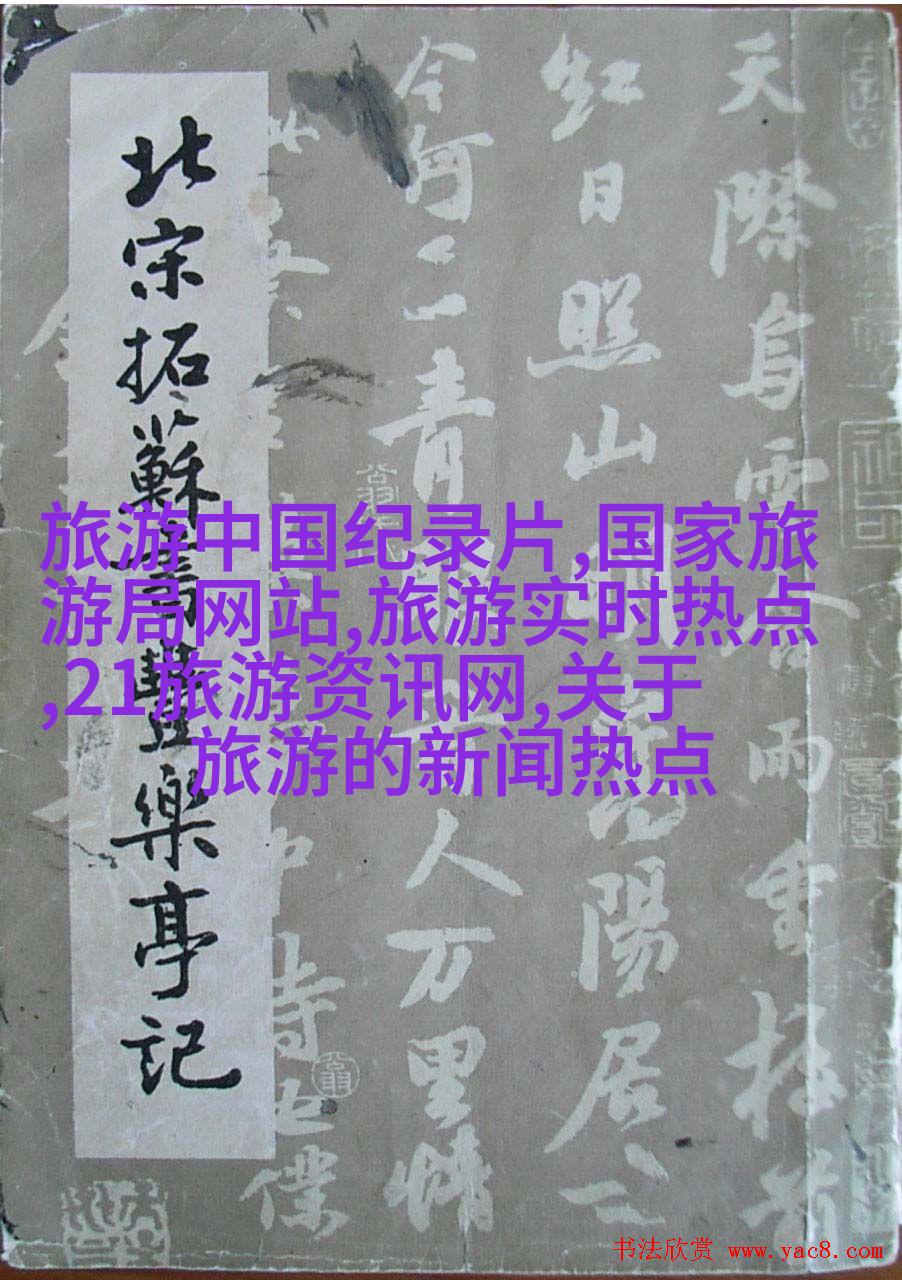 北宋拓蘇書豐樂亭記
天際烏雲含雨重樓前
紅日照山明嵩陽居士
今何在青眼看人万里情
此蔡
夢中詩也僕
旅游中国纪录片,国家旅
游局网站,旅游实时热点
,21旅游资讯网,关于
旅游的新闻热点
书法欣赏 www.yac8.com